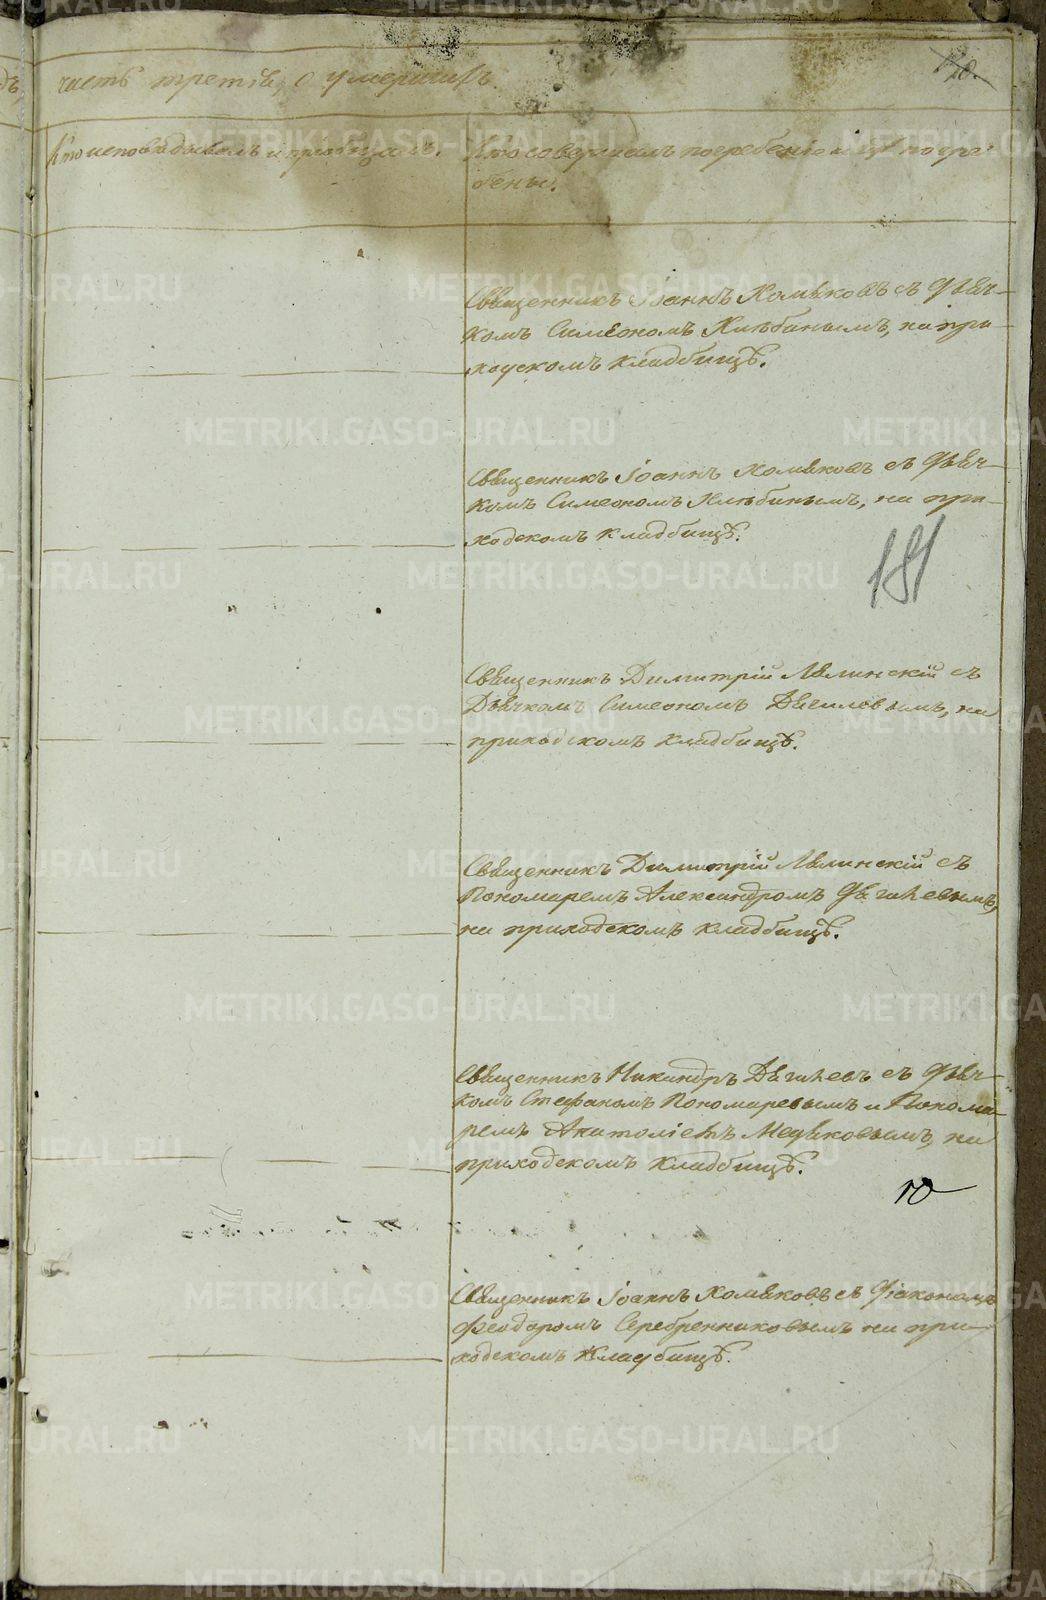 часть третія, о умершихъ.
Кто исповѣдывалъ и пріобщалъ.
Кто совершалъ погребеніе и гдѣ погре-
бены.
Священникъ Іоаннъ Хомяковъ съ Дьяч-
комъ Симеономъ Хлѣбинымъ, на при-
ходскомъ кладбищѣ.
Священникъ Іоаннъ Хомяковъ съ Дьяч-
комъ Симеономъ Хлѣбинымъ, на при-
ходскомъ кладбищѣ.
181
Священникъ Димитрій Лялинскій съ
Дьячкомъ Симеономъ на
приходскомъ кладбищѣ.
Священникъ Димитрій Лялинскій съ
Пономаремъ Александромъ Дягилевымъ,
на приходскомъ кладбищѣ.
Священникъ Никандръ Дягилевъ съ Дьяч-
комъ Стефаномъ Пономаревымъ и Понома-
ремъ Анатоліемъ Медяковымъ, на
приходскомъ кладбищѣ.
10
Священникъ Іоаннъ Хомяковъ съ Діакономъ
Феодоромъ Серебренниковымъ на при-
ходскомъ кладбищѣ.
METRIKI.GASO-URAL.RU